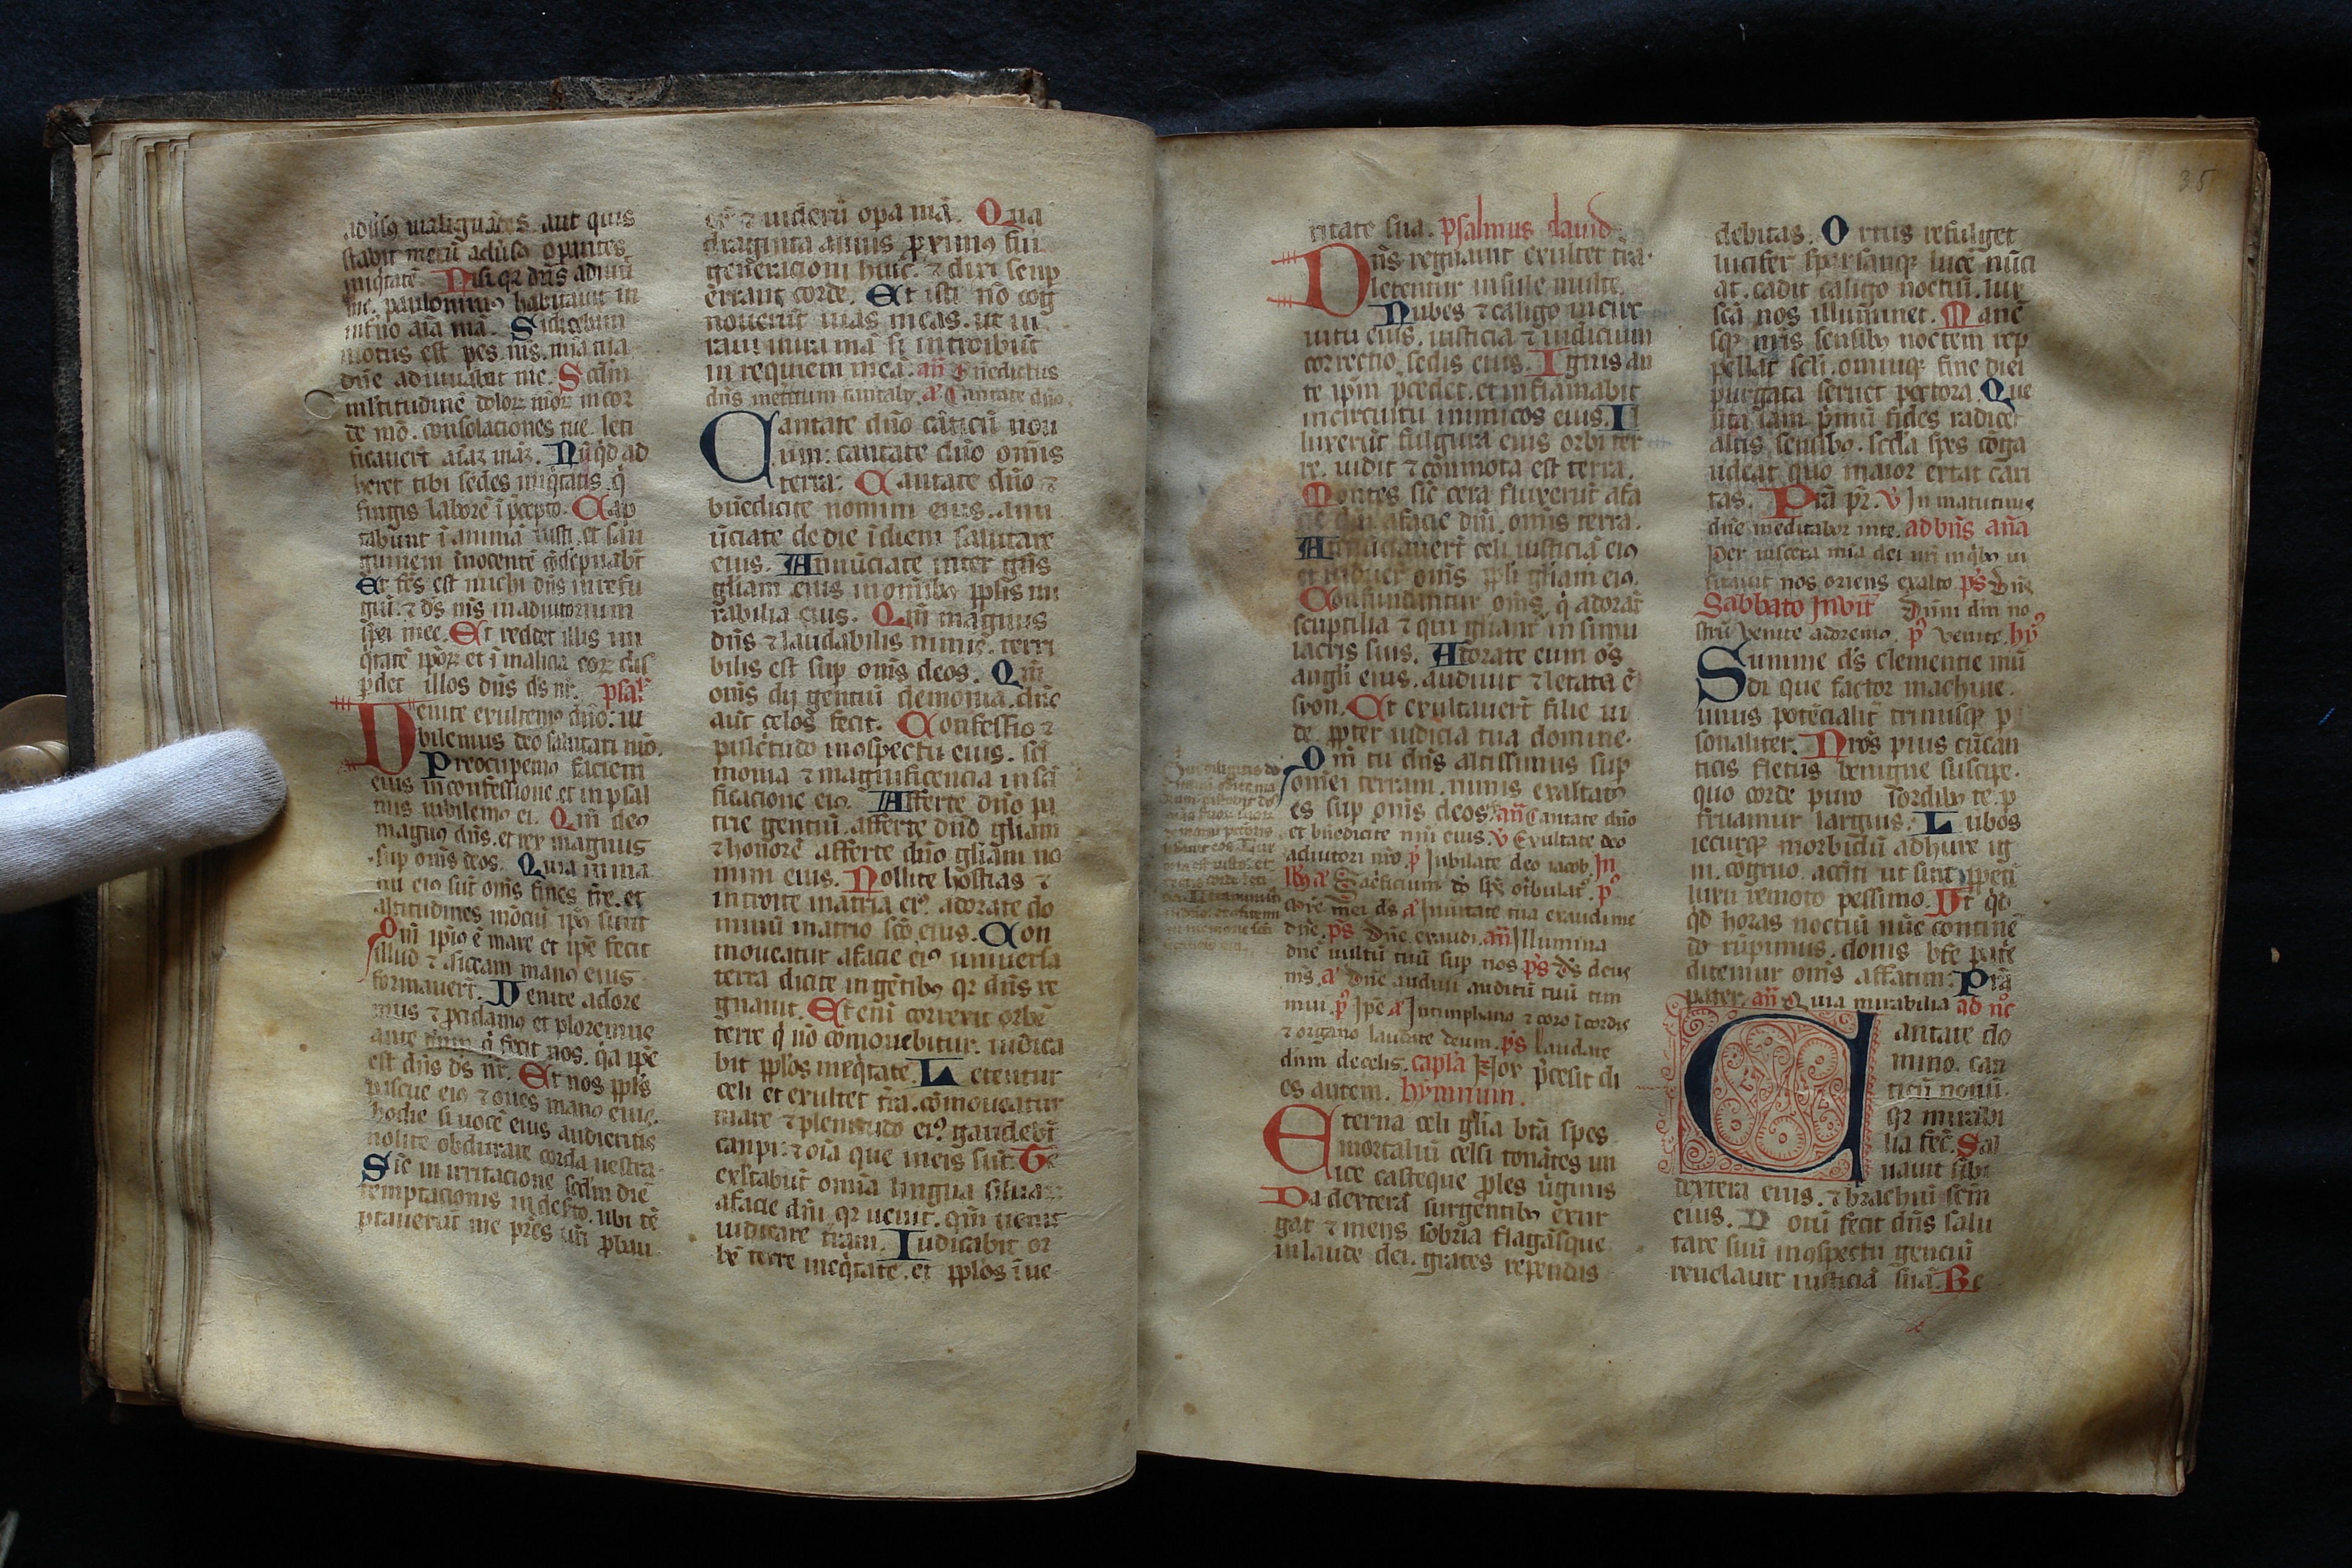 adũsꝯ malignãtes aut quis
stabit mecũ adũsꝯ opantes
iniq̃tatẽ. Nisi qꝛ dñs adiuũ
me. paulominꝰ habitauit in
inf̃no aĩa mã. Si dicebam
motus est pes mẽs. mĩa tua
dñe adiuuabat me. Scdm
ml̃titudinẽ dolorꝝ meorꝝ in cor
de mõ. consolaciones tue leti
ficauerт̃ aĩaꝫ mãꝫ. Nũqͥd ad
heret tibi sedes iniq̃tatis. q̇
fingis laborẽ ĩ p̃cepto. Cap
tabunt ĩ animã iusti. et san
guinem ĩnocentẽ cõdẽpnabt̃
Et fc̃s est michi dñs in refu
giũ. ⁊ ds̃ mẽs in adiutorium
spei mee. Et reddet illis ini
q̃tatẽ ip̃oꝝ et ĩ malicia eoꝝ dis
ꝑdet illos dñs ds̃ nr̃. psal
Venite exultemꝰ dño: iu
bilemus deo salutari nr̃o.
Preocupemꝰ faciem
eius in confessione. et in psal
mis iubilemꝰ ei. Qm̃ deꝰ
magnꝰ dñs. et rex magnus
sup om̃s deos. Quia in ma
nu eiꝰ sũt om̃s fines tr̃e. et
altitudines mõciũ ip̃iꝰ sunt
Qm̃ ip̃iꝰ ẽ mare et ip̃e fecit
illud ⁊ siccam manꝰ eius
formauert̃. Venite adore
mus ⁊ ꝓcidamꝰ et ploremus
ante dñm q̇ fecit nos. qͥa ip̃e
est dñs ds̃ nr̃. Et nos ppl̃s
pascue eiꝰ ⁊ oues manꝰ eius.
hodie si uocẽ eius audieritis
nolite obdurare corda uestra.
Sic̃ in irritacione scdm diẽ
temptacionis in desꝰto. ubi tẽ
ptauerũt me pr̃es ur̃i ꝓbau
er̃ ⁊ uiderũ opa mã. Qua
draginta annis ꝓximꝰ fui
generacioni huic. ⁊ dixi semꝑ
errant corde. Et isti nõ cog
nouerũt uias meas. ut iu
raui in ira mã si introibũt
in requiem mea. añ Bñedictus
dñs in et̃num cantabꝰ. a᷎ Cantate dño.
Cantate dño cãticũ nou
um: cantate dño om̃is
terra. Cantate dño ⁊
bñedicite nomini eius. annu
ũciate de die ĩ diem salutare
eius. Annũciate inter gñs
gl̃iam eius in om̃ibꝰ ppl̃is mi
rabilia eius. Qm̃ magnus
dñs ⁊ laudabilis nimis. terri
bilis est sup om̃s deos. Qm̃
om̃s dij gentiũ demonia. dñs
aũt celos fecit. Confessio ⁊
pulc̃tudo in ꝯspectu eius. sc̃i
monia ⁊ magnificencia in sc̃i
ficacione eiꝰ. Afferte dño pa
trie gentiũ. afferte dño gl̃iam
⁊ honorẽ afferte dño gl̃iam no
mini eius. Tollite hostias ⁊
introite in atria eiꝰ. adorate do
minũ in atrio sc̃o eius. Com
moueatur a facie eiꝰ uniuersa
terra dicite in gẽtibꝰ qꝛ dñs re
gnauit. Et eni correxit orbẽ
terre q̇ nõ comouebitur. iudica
bit ppl̃os in eq̇tate. Letentur
celi et exultet tr̃a. cõmoueatur
mare ⁊ plenitudo eiꝰ. gaudebt̃
campi ⁊ oĩa que in eis sũt. Tũc
exl̃tabũt omnia lingna siluaꝝ
a facie dñi qꝛ uenit. qm̃ uenit
iudicare tr̃am. Iudicabit or
bẽ terre in eq̇tate. et ppl̃os ĩ ue
ritate sua. psalmus dauid
Dñs regnauit exultet tr̃a.
letentur insule multe.
Nubes ⁊ caligo in cir
cuitu eius. iusticia ⁊ iudicium
correctio sedis eius. Ignis an
te ip̃m p̃cedet. et inflãmabit
in circuitu inimicos eius. Il
luxerũt fulgura eius orbi ter
re. uidit ⁊ cõmota est terra.
Montes sic̃ cera fluxerũt a fa
cie dñi. a facie dñi. om̃is terra.
Annũciauert̃ celi iusticiã eiꝰ
et uidert̃ om̃s ppl̃i gl̃iam eiꝰ.
Confundantur om̃s. q̇ adorãt
sculptilia ⁊ qui gl̃iant̃ in simu
lacris suis. Adorate eum om̃s
angl̃i eius. audiuit ⁊ letata ẽ
syon. Et exultauert̃ filie iu
de. ꝓpter iudicia tua domine.
Qm̃ tu dñs altissimus sup
omnẽ terram. nimis exaltatꝰ
es sup om̃s deos. añ Cantate dño
et bñedicite nm̃i eius. ꟟ Exultate deo
adiutori nr̃o p̃ Iubilate deo iacob. In
lbꝰ a᷎ Sac̃ficium dõ sp̃s ꝯtbulatꝰ. p̃
Mirẽ mei ds̃ a᷎ In ũitate tua exaudi me
dñe. ps̃ Dñe exaudi. añ Illumina
dñe uultũ tuũ sup nos ps̃ Ds̃ deus
ms̃. a᷎ Dñe audiui auditũ tuũ tim
mui. p̃ Ip̃e a᷎ In timphano ⁊ coro ĩ cordis
⁊ organo laudate deum. ps̃ Laudate
dñm de celis. capl̃a Nox p̃cesit di
es autem. hymnum.
Eterna celi gl̃ia btã spes
mortaliũ celsi tonãtes un
ice casteque ꝓles uirginis
Da dexterã surgentibꝰ exur
gat ⁊ mens sobria flagãsque
in laude dei. grates rependus
debitas. Ortus refulget
lucifer sparsamqꝫ lucẽ nũci
at. cadit caligo noctiũ. lux
scã nos illuminet. Manẽ
sqꝫ nr̃is sensibꝰ noctem rep
pellat scl̃i. omniqꝫ fine diei
purgata seruet pectora. Que
sita iam p̃mũ fides radicet
altis sensibꝰ. scd̃a spes cõga
udeat quo maior extat cari
tas. Prã pr̃. ꟟ In matutinis
dñe meditabor in te. ad bñs aña
Per uiscera mĩa dei nr̃i in qͥbꝰ ui
sitauit nos oriens ex alto. ps̃ Bñs
Sabbato Inuit̃ Dñm dm̃ no
strũ Venite adoremꝰ. p̃ Venite. hyꝰ
Summe ds̃ clementie mũ
di que factor machine.
unus potẽcialit̃ trinusqꝫ ꝑ
sonaliter. Nr̃os pius cũ can
ticis fletus benigne suscipe.
quo corde puro sordibꝰ te ꝑ
fruamur largius. Lũbos
iecurqꝫ morbidũ adhure ig
ni. cõgruo. accĩti ut sint ꝑpeti
luxu remoto pessimo. Ut qͥdͣ
qͥdͣ horas noctiũ nũc continẽ
do rũpimus. donis bt̃e patͥe
ditemur om̃s affatim. Prã
pater. añ Quia mirabilia ad nꝰc
Cantate do
mino. can
ticũ nouũ.
qꝛ mirabi
lia fec̃. Sal
uauit sibi
dextera eius. ⁊ brachiũ scm̃
eius. Notũ fecit dñs salu
tare suũ in ꝯspectu genciũ
reuelauit iusticiã suã. Re
35